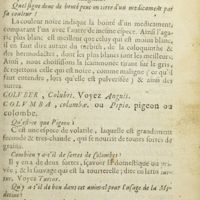 Quel signe donc de bonté peut-on tirer d'un medicament par
sa couleur?
La couleur noire indique la bonté d'un medicament,
comparant l'un avec l'autre de mesme espece. Ainsi
plus blanc est meilleur que celuy qui est moins blanc,
il faut dire autant du turbith, de la coloquinthe &
des hermodactes, dont les plus blancs sont les meilleurs.
Ainsi, nous choisissons la scammonée, quand elle est
gris, & rejettons celle qui est noire, comme maligne; or qu'il
faut entendre, lors qu'elle est pulverisée; & ainsi des
autres.
COLUBER, Colubri. Voyez Anguis.
COLUMBA, columbæ, ou Pipio, pigeon ou
colombe.
Qu'est-ce que Pigeon?
C'est une espece de volatile, laquelle est grandement
feconde & tres-chaude, & qui se nourrit de toutes sortes de
grains.
Combien y a-t'il de sortes de Colombes?
Il y en a de deux sortes, sçavoir la domestique ou privée,
& la sauvage qui est la tourterelle, dite en latin
tur. Voyez Turtur.
Qu'y a-t'il de bon dans cet animal pour l'usage de la Me-
decine?